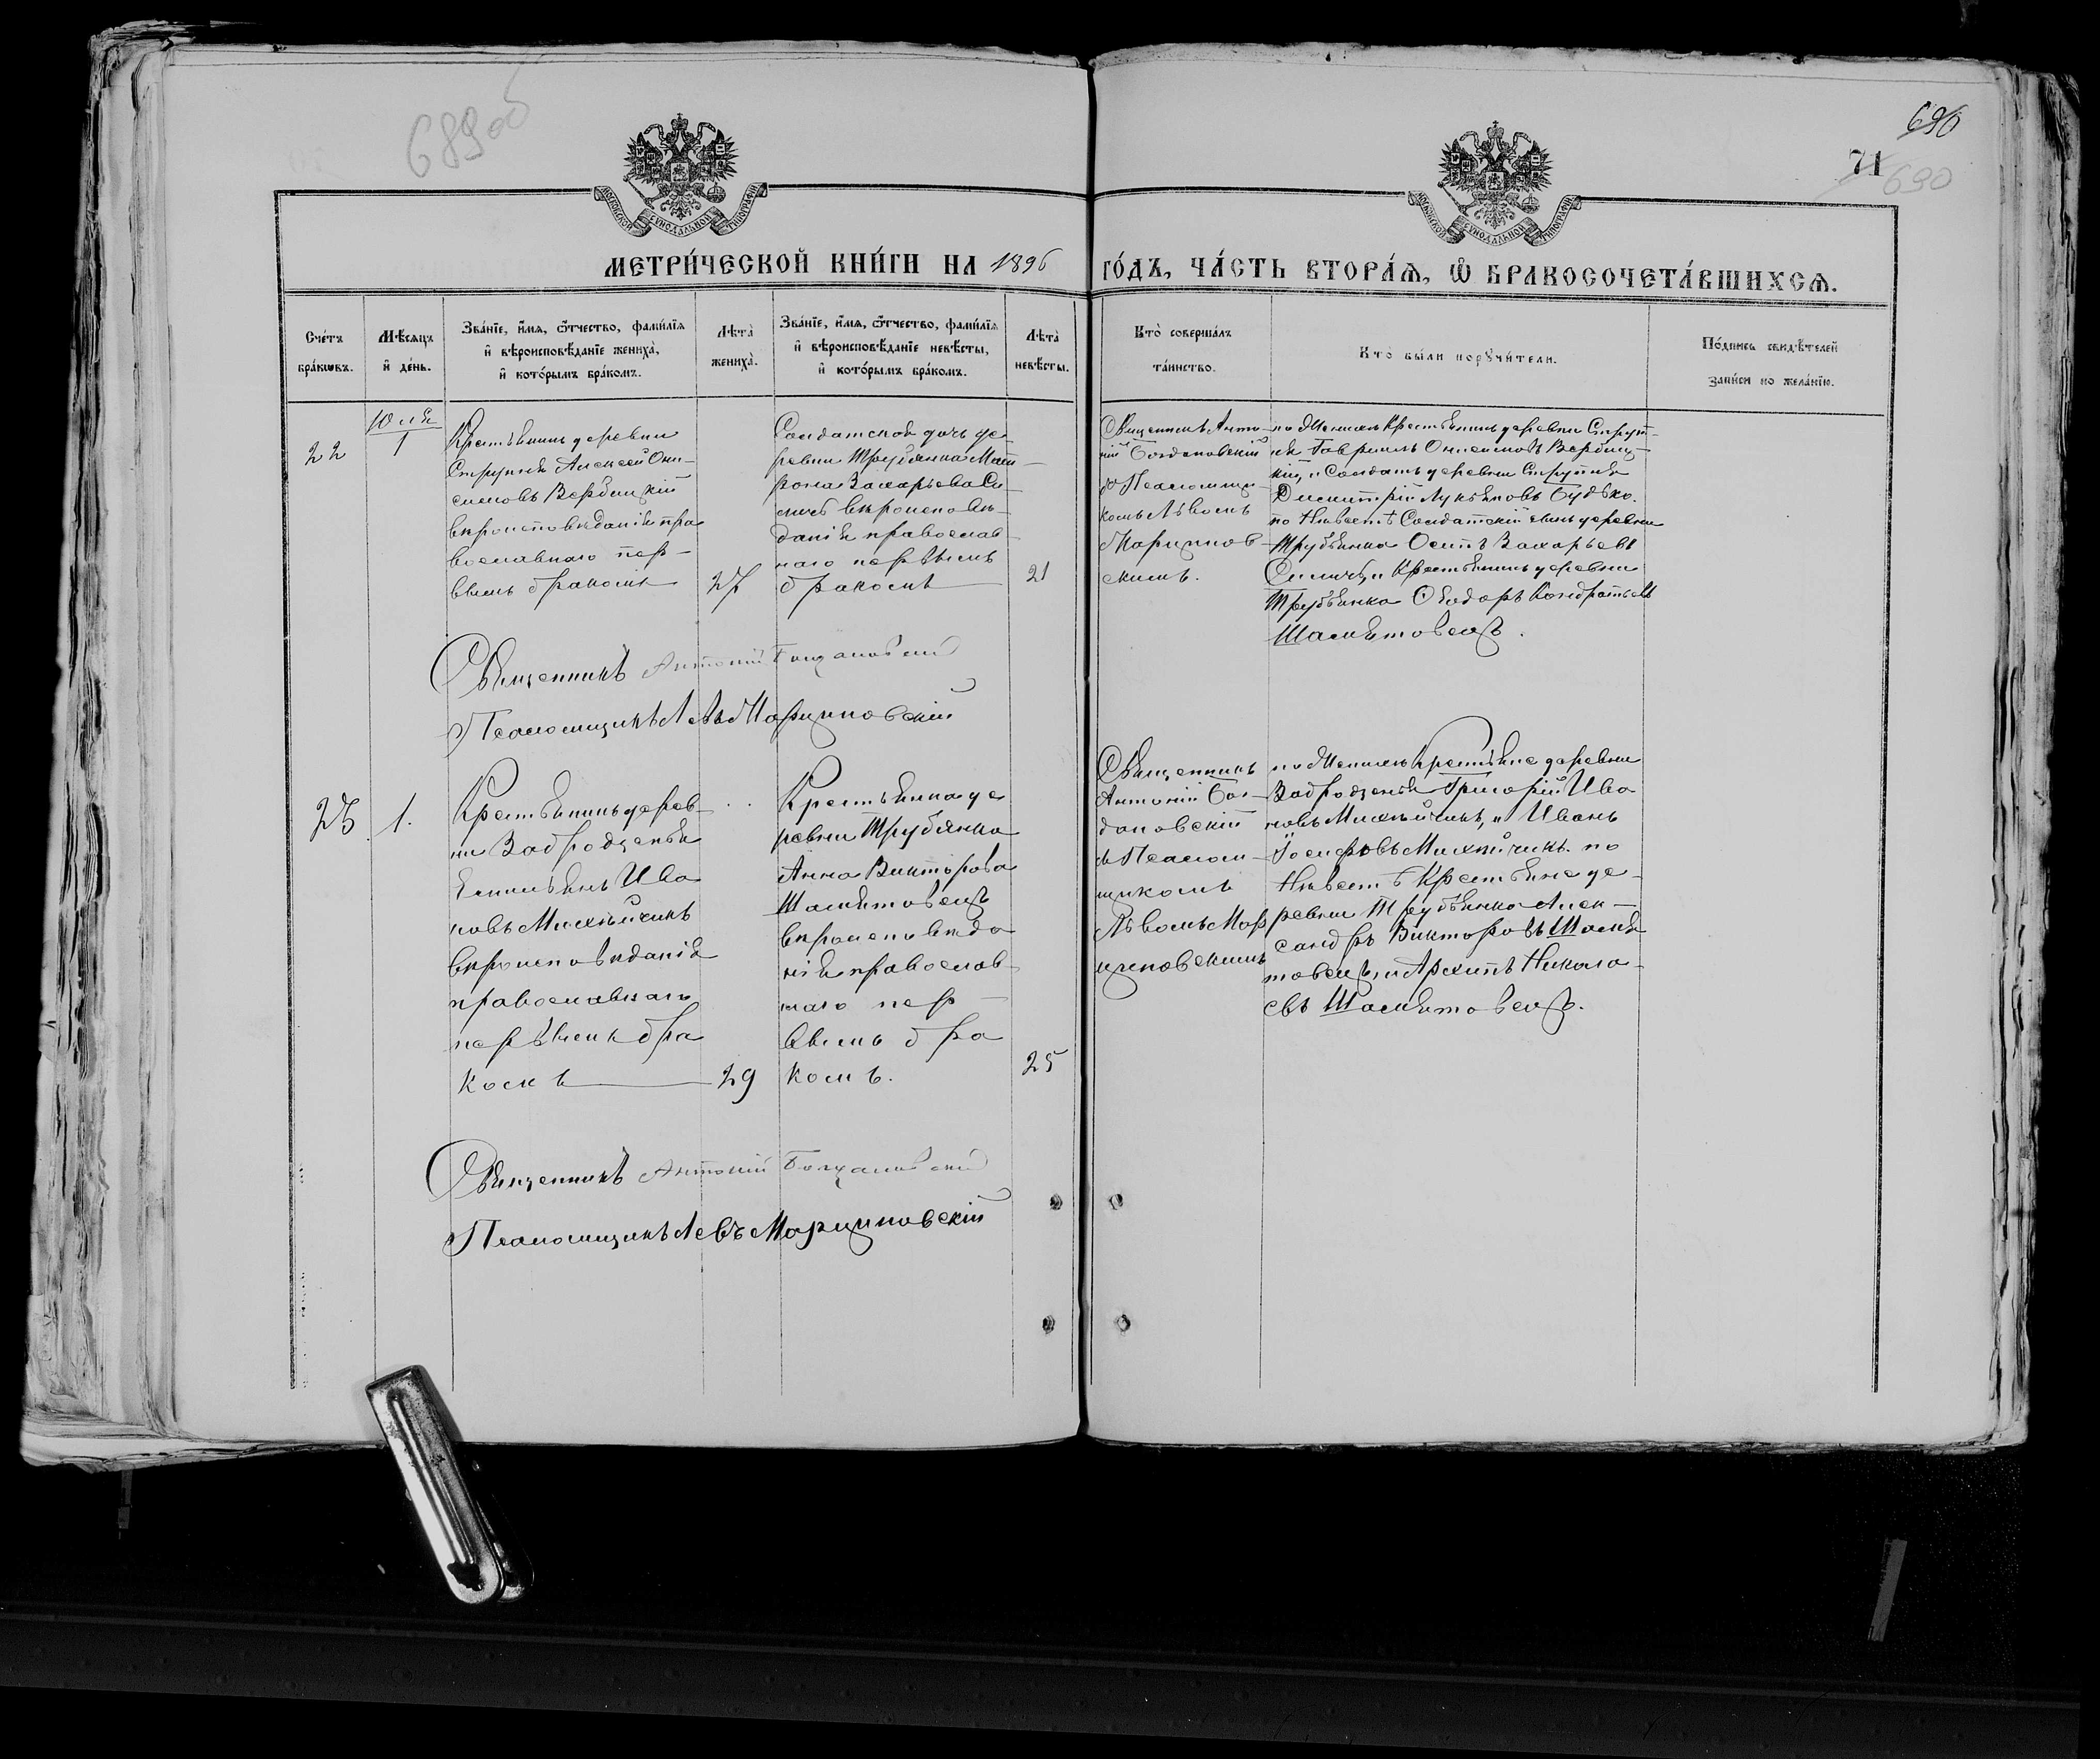 689об
696
71
690
МОСКОВСКОЙ СѴНОДАЛЬНОЙ ТИПОГРАФІИ
МОСКОВСКОЙ СѴНОДАЛЬНОЙ ТИПОГРАФІИ
МЕТРИ́ЧЕСКОЙ КНИ́ГИ НА 1896 ГО́ДЪ, ЧА́СТЬ ВТОРА́Я, Ѿ БРАКОСОЧЕТА́ВШИХСЯ.
Сче́тъ
бра́кωвъ.
Мѣ́сяцъ
и҆ де́нь.
Зва́нїе, и҆́мя, ѻ҆́тчество, фами́лїя
и҆ вѣроисповѣ́данїе жениха̀,
и҆ кото́рымъ бра́комъ.
Лѣта̀
жениха̀.
Зва́нїе, и҆́мя, ѻ҆́тчество, фами́лїя
и҆ вѣроисповѣ́данїе невѣ́сты,
и҆ кото́рымъ бра́комъ.
Лѣта̀
невѣ́сты.
Кто̀ соверша́лъ
та́инство.
Кто̀ бы́ли порꙋчи́тели.
По́дпись свидѣ́телей
за́писи по жела́нїю.
22
Юля
1
Крестьянинъ деревни
Струпня Алексей Они-
симовъ Вербицкій
вѣроисповѣданія пра
вославнаго пер-
вымъ бракомъ
27
Солдатская дочь де-
ревни Трубянка Мат-
рона Захарьева Си
личъ вѣроисповѣ-
данія православ-
наго первымъ
бракомъ
21
Священникъ Анто-
ній Богдановскій
съ Псаломщи-
комъ Львомъ
Марцинов-
скимъ.
по Женихѣ Крестьянинъ деревни Струп-
ня Гавріилъ Онисимовъ Вербиц-
кій, и Солдатъ деревни Струпня
Димитрій Лукьяновъ Будько.
по Невѣстѣ Солдатскій сынъ деревни
Трубянка Осипъ Захарьевъ
Силичъ и Крестьянинъ деревни
Трубянка Ѳеодоръ Кондратьевъ
Шаметовецъ.
Священникъ Антоній Богдановскій
Псаломщикъ Левъ Марциновскій
23
1.
Крестьянинъ дерев-
ни Забродзенья
Емильянъ Ива
новъ Михнѣйчикъ
вѣроисповѣданія
православнаго
первымъ бра
комъ
29
Крестьянка де
ревни Трубянка
Анна Викторова
Шаметовецъ
вѣроисповѣда
нія православ-
наго пер-
вымъ бра
комъ.
25
Священникъ
Антоній Бог-
дановскій
съ Псалом-
щикомъ
Львомъ Мар
циновскимъ
по Женихѣ Крестьяне деревни
Забродзенья Григорій Ива
новъ Михнѣйчикъ, и Иванъ
Іосифовъ Михнѣйчикъ. по
Невѣстѣ Крестьяне де-
ревни Трубянка Алек-
сандръ Викторовъ Шаме
товецъ, и Архипъ Никола-
евъ Шаметовецъ.
Священникъ Антоній Богдановскій
Псаломщикъ Левъ Марциновскій